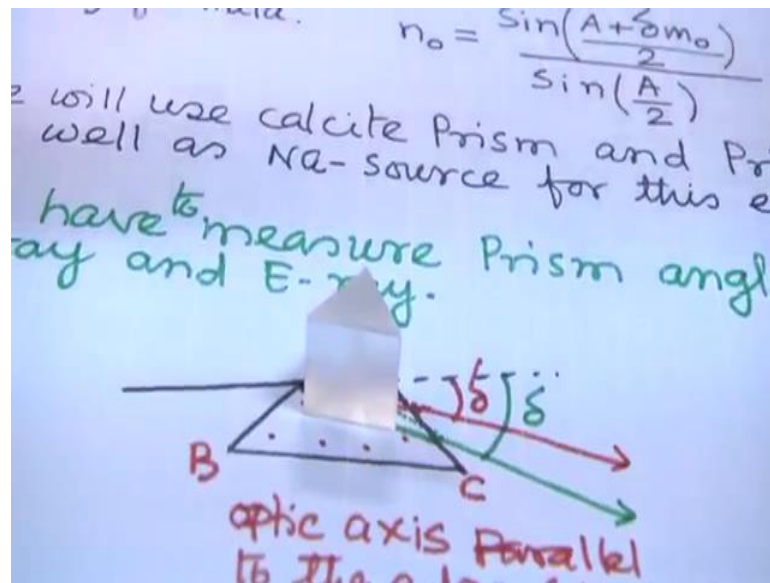 n₀ = sin(A+δm₀/2) / sin(A/2)
will use calcite Prism and
well as Na-source for this
have to measure Prism
and E-ray.
δ δ
B
C
optic axis Parallel
to the